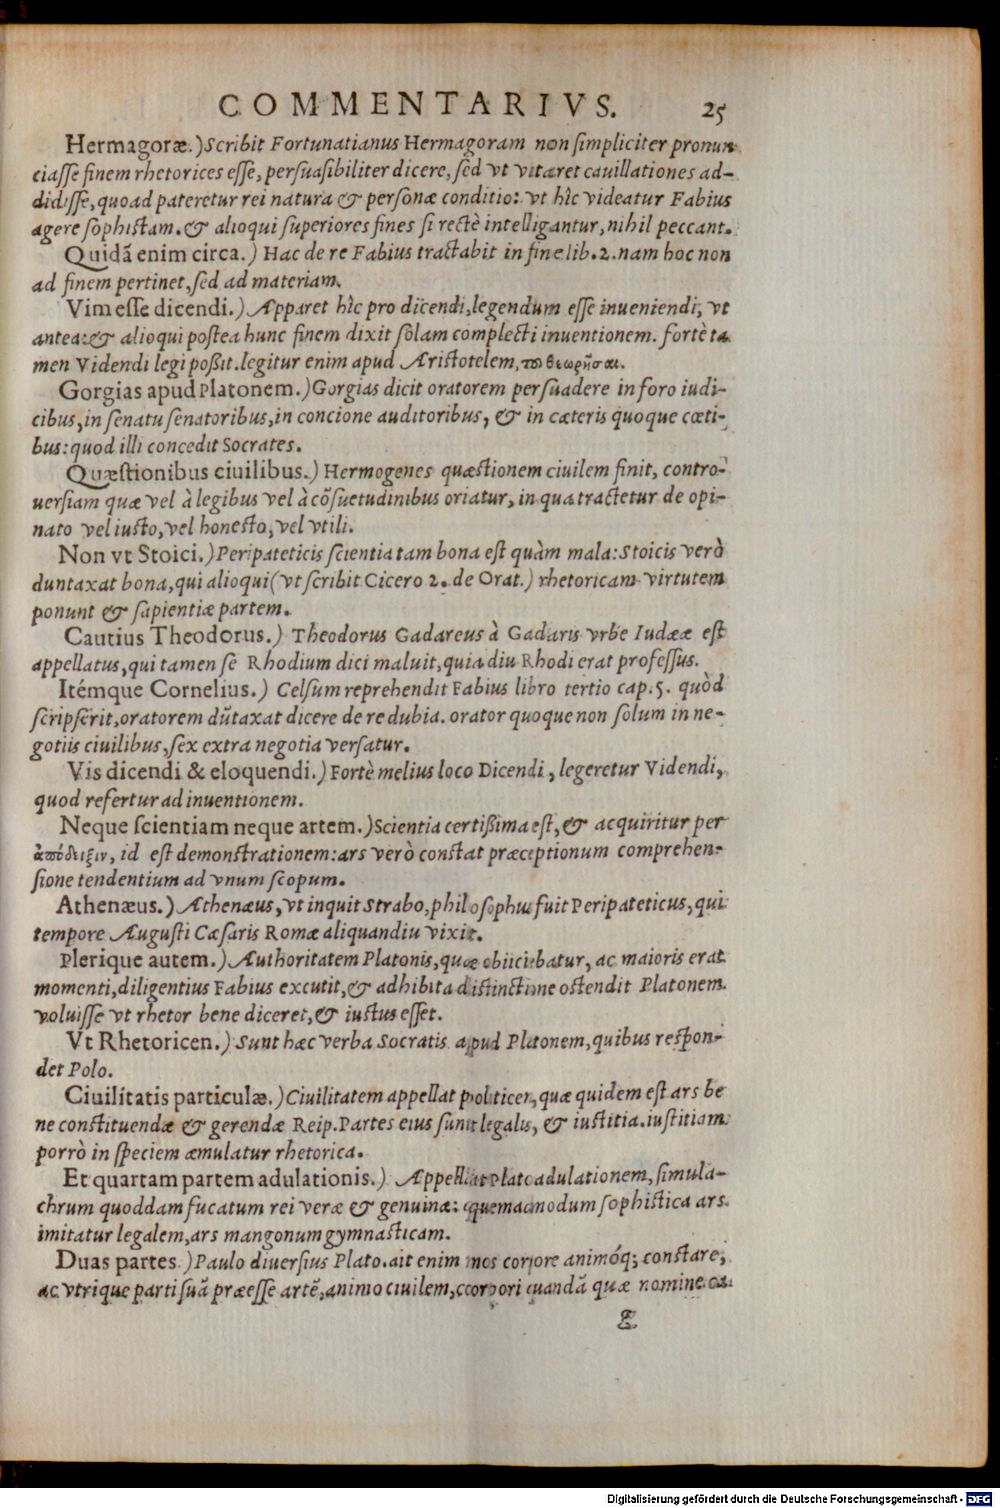 COMMENTARIVS. 25
Hermagoræ.) Scribit Fortunatianus Hermagoram non ſimpliciter pronun
ciaſſe finem rhetorices eſſe, perſuaſibiliter dicere, ſed vt vitaret cauillationes ad-
didiſſe, quoad pateretur rei natura & perſonæ conditio: vt hîc videatur Fabius
agere ſophiſtam. & alioqui ſuperiores fines ſi rectè intelligantur, nihil peccant.
Quidã enim circa.) Hac de re Fabius tractabit in fine lib. 2. nam hoc non
ad finem pertinet, ſed ad materiam.
Vim eſſe dicendi.) Apparet hîc pro dicendi, legendum eſſe inueniendi, vt
antea: & alioqui poſtea hunc finem dixit ſolam complecti inuentionem. fortè ta
men Videndi legi poßit. legitur enim apud Ariſtotelem, το θεωρῆσαι.
Gorgias apud Platonem.) Gorgias dicit oratorem perſuadere in foro iudi-
cibus, in ſenatu ſenatoribus, in concione auditoribus, & in cæteris quoque cœti-
bus: quod illi concedit Socrates.
Quæſtionibus ciuilibus.) Hermogenes quæſtionem ciuilem finit, contro-
uerſiam quæ vel à legibus vel à cõſuetudinibus oriatur, in qua tractetur de opi-
nato vel iuſto, vel honeſto, vel vtili.
Non vt Stoici.) Peripateticis ſcientia tam bona eſt quàm mala: Stoicis verò
duntaxat bona, qui alioqui (vt ſcribit Cicero 2. de Orat.) rhetoricam virtutem
ponunt & ſapientiæ partem.
Cautius Theodorus.) Theodorus Gadareus à Gadaris vrbe Iudææ eſt
appellatus, qui tamen ſe Rhodium dici maluit, quia diu Rhodi erat profeſſus.
Itémque Cornelius.) Celſum reprehendit Fabius libro tertio cap. 5. quòd
ſcripſerit, oratorem dũtaxat dicere de re dubia. orator quoque non ſolum in ne-
gotiis ciuilibus, ſex extra negotia verſatur.
Vis dicendi & eloquendi.) Fortè melius loco Dicendi, legeretur Videndi,
quod refertur ad inuentionem.
Neque ſcientiam neque artem.) Scientia certißima eſt, & acquiritur per
ἀπόδειξιν, id eſt demonſtrationem: ars verò conſtat præceptionum comprehen-
ſione tendentium ad vnum ſcopum.
Athenæus.) Athenæus, vt inquit Strabo, philoſophus fuit Peripateticus, qui
tempore Auguſti Cæſaris Romæ aliquandiu vixit.
Plerique autem.) Authoritatem Platonis, quæ obiiciebatur, ac maioris erat
momenti, diligentius Fabius excutit, & adhibita diſtinctione oſtendit Platonem
voluiſſe vt rhetor bene diceret, & iuſtus eſſet.
Vt Rhetoricen.) Sunt hæc verba Socratis apud Platonem, quibus reſpon-
det Polo.
Ciuilitatis particulæ.) Ciuilitatem appellat politicen, quæ quidem eſt ars be
ne conſtituendæ & gerendæ Reip. Partes eius ſunt legalis, & iuſtitia. iuſtitiam
porrò in ſpeciem æmulatur rhetorica.
Et quartam partem adulationis.) Appellat Plato adulationem, ſimula-
chrum quoddam fucatum rei veræ & genuinæ: quemadmodum ſophiſtica ars
imitatur legalem, ars mangonum gymnaſticam.
Duas partes.) Paulo diuerſius Plato. ait enim nos corpore animóq; conſtare,
ac vtrique parti ſuã præeſſe artẽ, animo ciuilem, corpori quandã quæ nomine ca